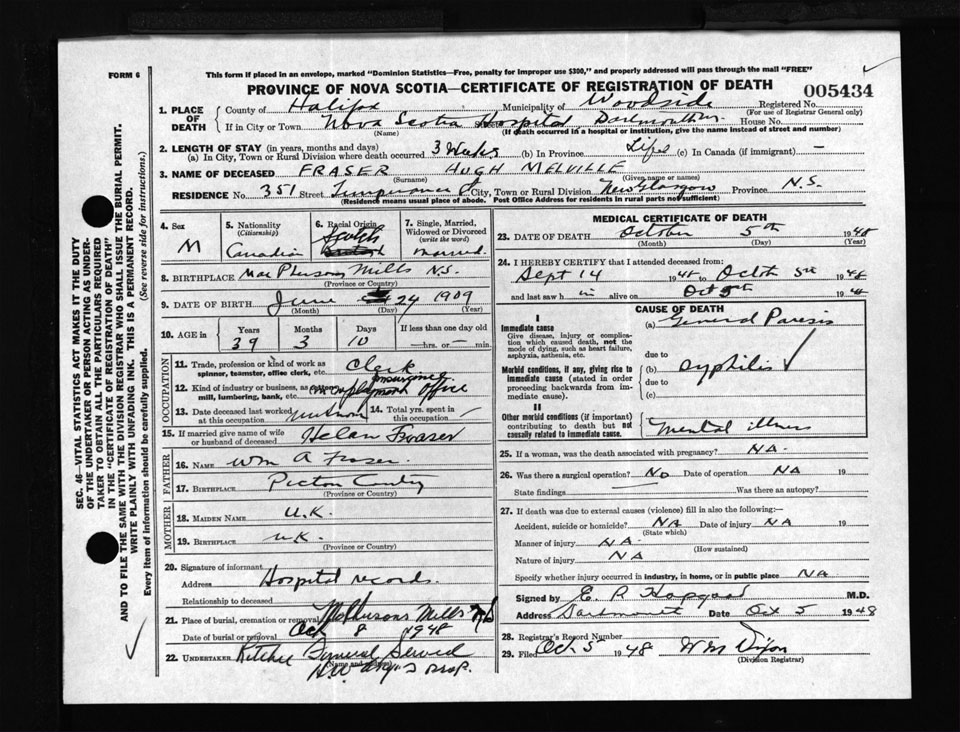 FORM 6
This form if placed in an envelope, marked "Dominion Statistics—Free, penalty for improper use $300," and properly addressed will pass through the mail "FREE"
PROVINCE OF NOVA SCOTIA—CERTIFICATE OF REGISTRATION OF DEATH
005434
1. PLACE OF DEATH
County of Halifax Municipality of Woodside Registered No.
(For use of Registrar General only)
If in City or Town Nova Scotia Hospital Dartmouth House No.
(Name) (If death occurred in a hospital or institution, give the name instead of street and number)
2. LENGTH OF STAY (in years, months and days)
(a) In City, Town or Rural Division where death occurred 3 Weeks (b) In Province Life (c) In Canada (if immigrant) —
3. NAME OF DECEASED FRASER HUGH MELVILLE
(Surname) (Given name or names)
RESIDENCE No. 351 Street Temperance St City, Town or Rural Division New Glasgow Province N.S.
(Residence means usual place of abode. Post Office Address for residents in rural parts not sufficient)
4. Sex M
5. Nationality (Citizenship) Canadian
6. Racial Origin Scotch
7. Single, Married, Widowed or Divorced (write the word) Married
8. BIRTHPLACE MacPhersons Mills N.S.
(Province or Country)
9. DATE OF BIRTH June 24 1909
(Month) (Day) (Year)
10. AGE Years 39 Months 3 Days 10 If less than one day old —hrs. or — min.
OCCUPATION
11. Trade, profession or kind of work as spinner, teamster, office clerk, etc. Clerk
12. Kind of industry or business, as cotton mill, lumbering, bank, etc. unemployment insurance office
13. Date deceased last worked at this occupation unknown 14. Total yrs. spent in this occupation
15. If married give name of wife or husband of deceased Helen Fraser
FATHER
16. NAME Wm A Fraser
17. BIRTHPLACE Pictou County
(Province or Country)
MOTHER
18. MAIDEN NAME U.K.
19. BIRTHPLACE U.K.
(Province or Country)
20. Signature of informant
Address Hospital records.
Relationship to deceased
21. Place of burial, cremation or removal McPhersons Mills N.S.
Date of burial or removal Oct 8 1948
22. UNDERTAKER Ritchie Funeral Service
(Name and address)
Prop.
MEDICAL CERTIFICATE OF DEATH
23. DATE OF DEATH October 5th 1948
(Month) (Day) (Year)
24. I HEREBY CERTIFY that I attended deceased from:
Sept 14 1948 to Octob 5th 1948
and last saw h im alive on Oct 5th 1948
CAUSE OF DEATH
I
Immediate cause
Give disease, injury or complication which caused death, not the mode of dying, such as heart failure, asphyxia, asthenia, etc.
(a) General Paresis
due to
Morbid conditions, if any, giving rise to immediate cause (stated in order proceeding backwards from immediate cause).
(b) Syphilis
due to
(c)
II
Other morbid conditions (if important) contributing to death but not causally related to immediate cause.
Mental illness
25. If a woman, was the death associated with pregnancy? NA.
26. Was there a surgical operation? No Date of operation NA 19
State findings Was there an autopsy?
27. If death was due to external causes (violence) fill in also the following:
Accident, suicide or homicide? NA Date of injury NA 19
(State which)
Manner of injury NA.
(How sustained)
Nature of injury NA
Specify whether injury occurred in industry, in home, or in public place NA
Signed by E. P. Hopgood M.D.
Address Dartmouth Date Oct 5 1948
28. Registrar's Record Number
29. Filed Oct 5 1948 Wm Dixon
(Division Registrar)
SEC. 46—VITAL STATISTICS ACT MAKES IT THE DUTY
OF THE UNDERTAKER OR PERSON ACTING AS UNDER-
TAKER TO OBTAIN ALL THE PARTICULARS REQUIRED
IN THE "CERTIFICATE OF REGISTRATION OF DEATH"
AND TO FILE THE SAME WITH THE DIVISION REGISTRAR WHO SHALL ISSUE THE BURIAL PERMIT.
WRITE PLAINLY WITH UNFADING INK. THIS IS A PERMANENT RECORD.
Every item of information should be carefully supplied. (See reverse side for instructions.)